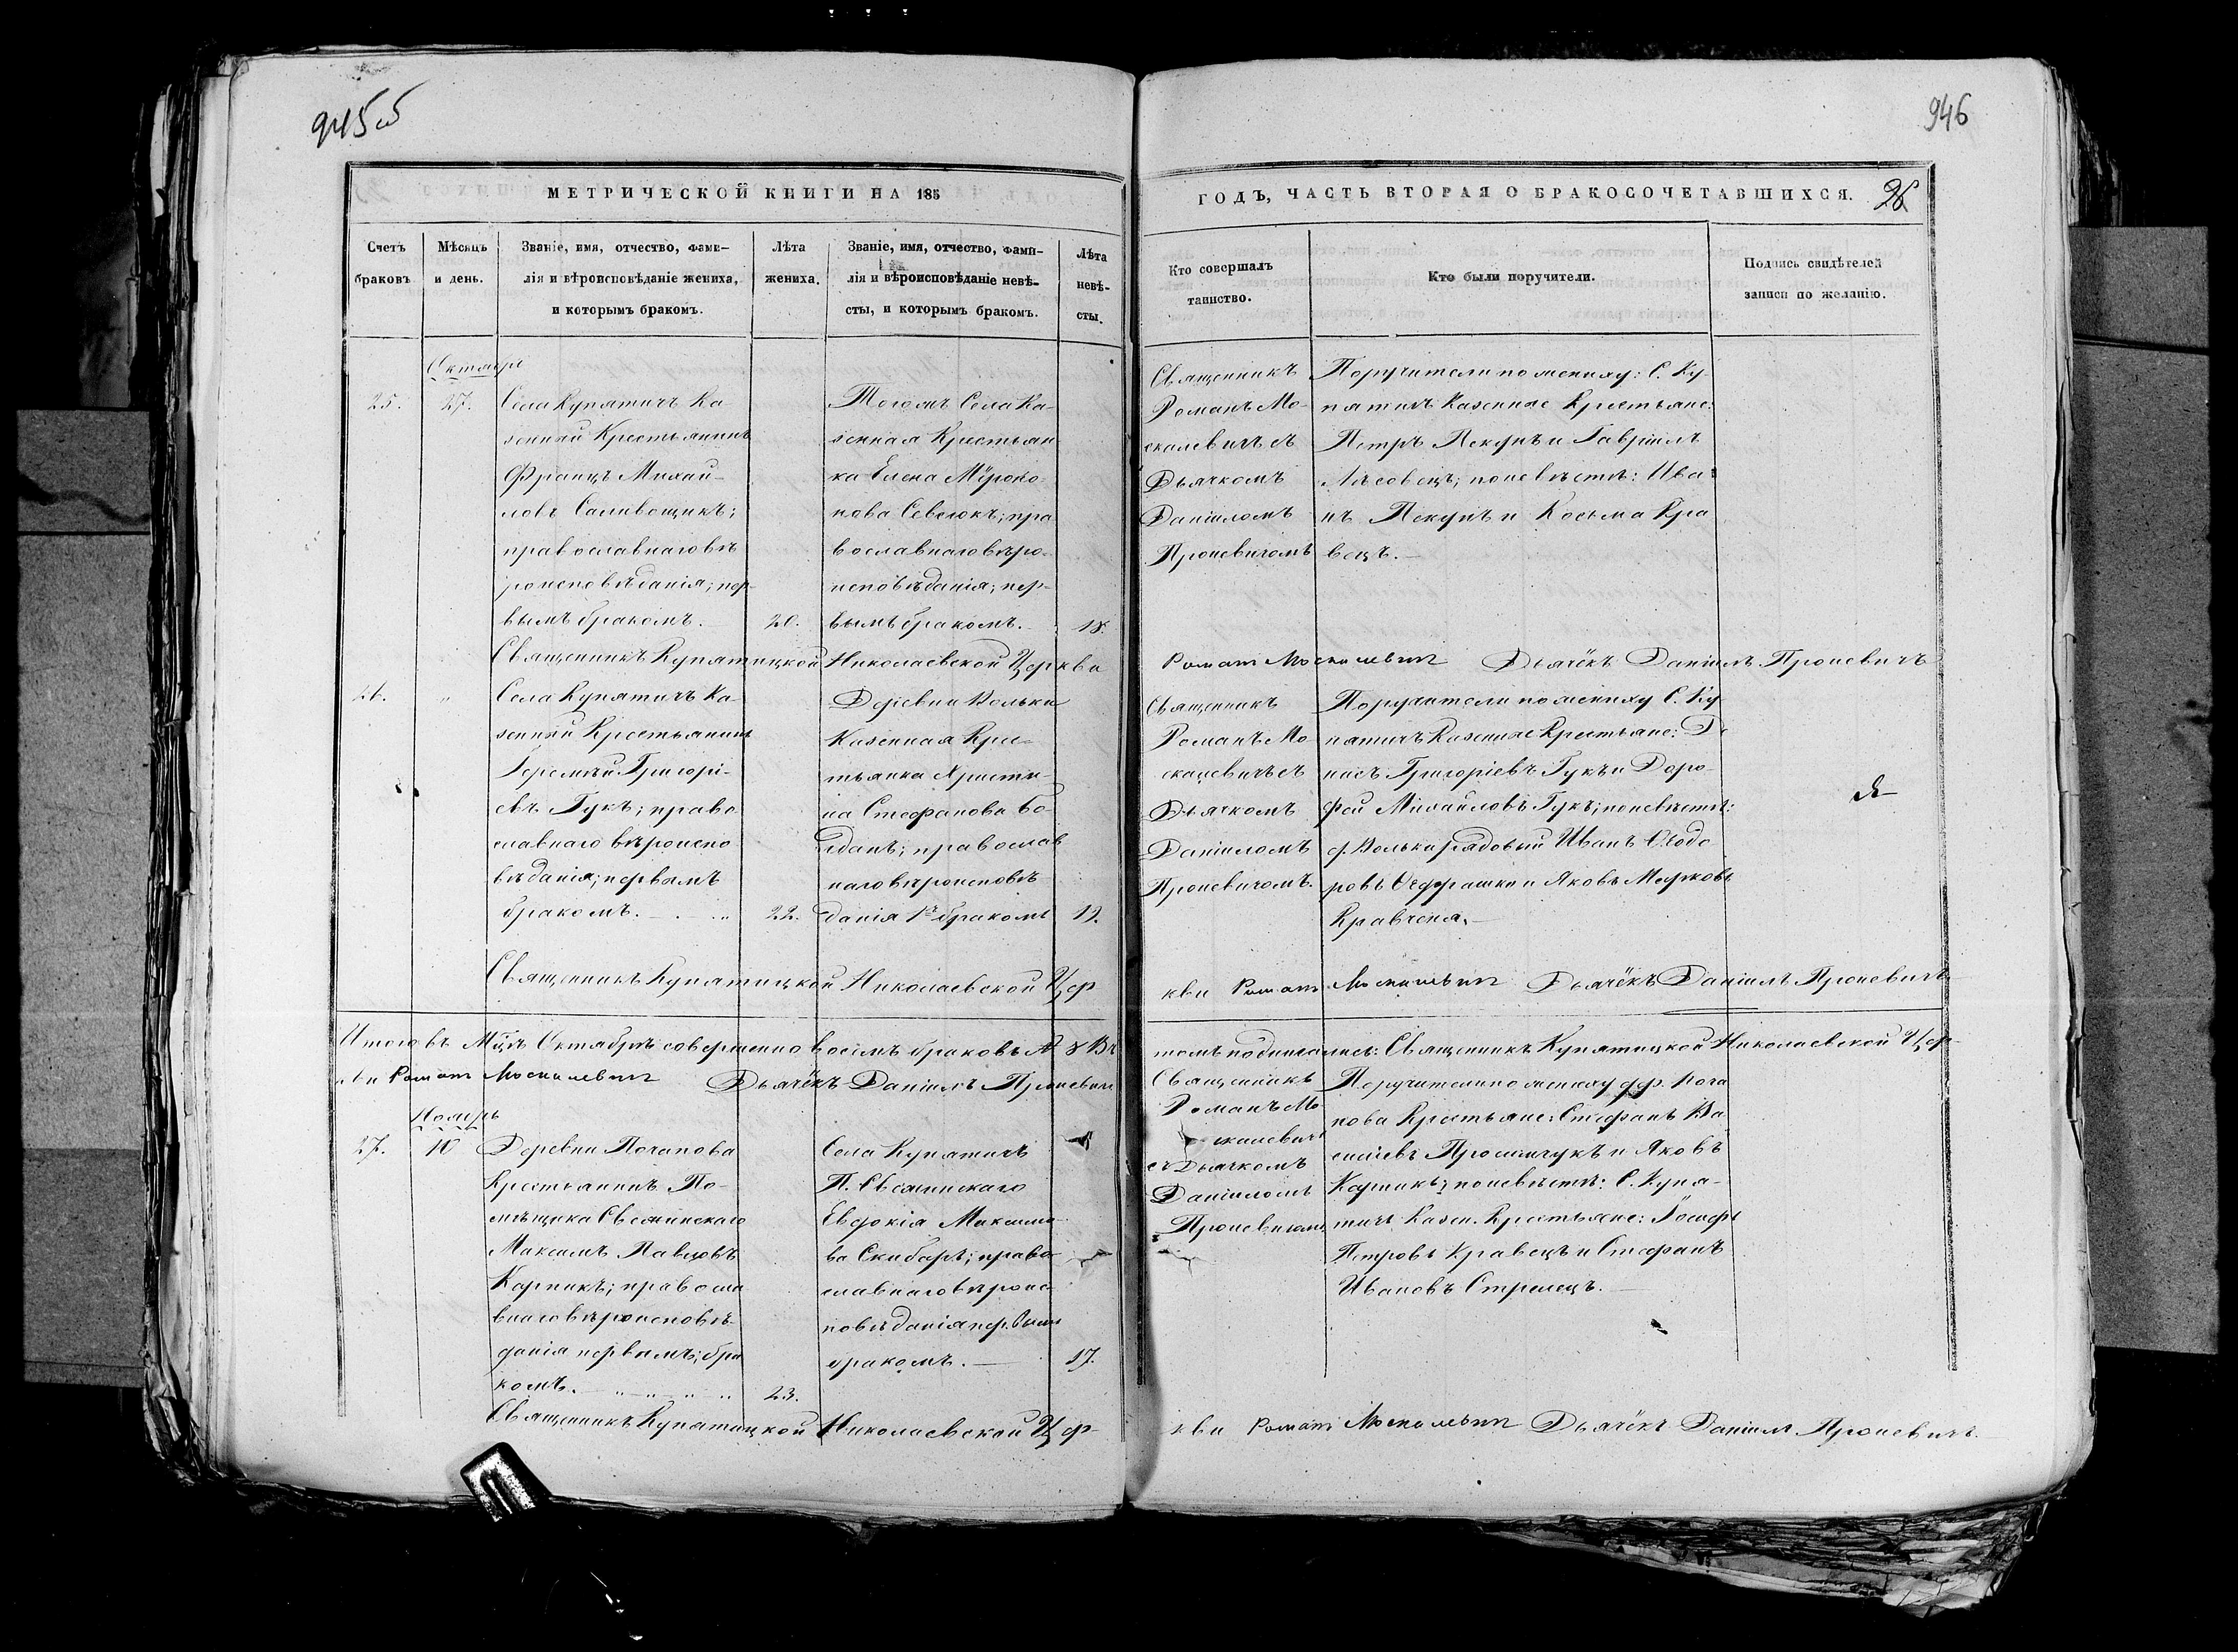 945об
946
МЕТРИЧЕСКОЙ КНИГИ НА 185
ГОДЪ, ЧАСТЬ ВТОРАЯ О БРАКОСОЧЕТАВШИХСЯ.
26
Счетъ
браковъ
Мѣсяцъ
и день.
Званіе, имя, отчество, фами-
лія и вѣроисповѣданіе жениха,
и которымъ бракомъ.
Лѣта
жениха.
Званіе, имя, отчество, фами-
лія и вѣроисповѣданіе невѣ-
сты, и которымъ бракомъ.
Лѣта
невѣ-
сты.
Кто совершалъ
таинство.
Кто были поручители.
Подпись свидѣтелей
записи по желанію.
Октябрь
25.
27.
Села Купятичъ Ка-
зенный Крестьянинъ
Францъ Михай-
ловъ Саливощикъ;
православнаго вѣ
роисповѣданія; пер-
вымъ бракомъ.
20.
Тогожъ Села Ка-
зенная Крестьян
ка Елена Мѵроно
нова Севелюкъ; пра
вославнаго вѣро-
исповѣданія; пер-
вымъ бракомъ.
18.
Священникъ
Романъ Мо-
скалевичъ съ
Дьячкомъ
Даніиломъ
Проневичомъ
Поручители по жениху: С. Ку-
пятичъ Казенные Крестьяне:
Петръ Пекунъ и Гавріилъ
Лѣсовецъ; по невѣстѣ: Ива-
нъ Пекунъ и Косьма Кра
вецъ.
Священникъ Купятицкой Николаевской Церкви
Романъ Москалевичъ Дьячёкъ Даніилъ Проневичъ
26.
"
Села Купятичъ Ка-
зенный Крестьянинъ
Іеремѣй Григорі-
евъ Гукъ; право
славнаго вѣроиспо
вѣданія; первымъ
бракомъ.
22.
Деревни Вольки
Казенная Крес-
тьянка Христи-
на Стефанова Бо-
гданъ; православ
наго вѣроисповѣ-
данія 1мъ бракомъ
19.
Священникъ
Романъ Мо-
скалевичъ съ
Дьячкомъ
Даніиломъ
Проневичомъ.
Поручители по жениху С. Ку
пятичъ Казенные Крестьяне: Де
нисъ Григоріевъ Гукъ и Доро-
фей Михайловъ Гукъ; по невѣстѣ:
д. Волька рядовый Иванъ Ѳеодо
ровъ и Яковъ Марковъ
Кравченя.
Священникъ Купятицкой Николаевской Цер
кви Романъ Москалевичъ Дьячёкъ Даніилъ Проневичъ
Итого въ Мцѣ Октябрѣ совершено восемь браковъ № 8 Въ
томъ подписались: Священникъ Купятицкой Николаевской Цер-
кви Романъ Москалевичъ Дьячёкъ Даніилъ Проневичъ
Ноябрь
27.
10
Деревни Почапова
Крестьянинъ По-
мѣщика Свежинскаго
Максимъ Павловъ
Карпикъ; правосла
внаго вѣроисповѣ-
данія первымъ; бра
комъ.
23.
Села Купятичъ
П. Свежинскаго
Евдокія Максимо-
ва Скибарь; право-
славнаго вѣроис-
повѣданія первымъ
бракомъ.
17.
Священникъ
Романъ Мо
скалевичъ
съ Дьячкомъ
Даніиломъ
Проневичомъ
Поручители по жениху дер. Поча
пова Крестьяне: Стефанъ Ва
силіевъ Просимчукъ и Яковъ
Карпикъ; по невѣстѣ: С. Купя-
тичъ Казен. Крестьяне: Іосифъ
Петровъ Кравецъ и Стефанъ
Ивановъ Стрелецъ.
Священникъ Купятицкой Николаевской Цер-
кви Романъ Москалевичъ Дьячёкъ Даніилъ Проневичъ.